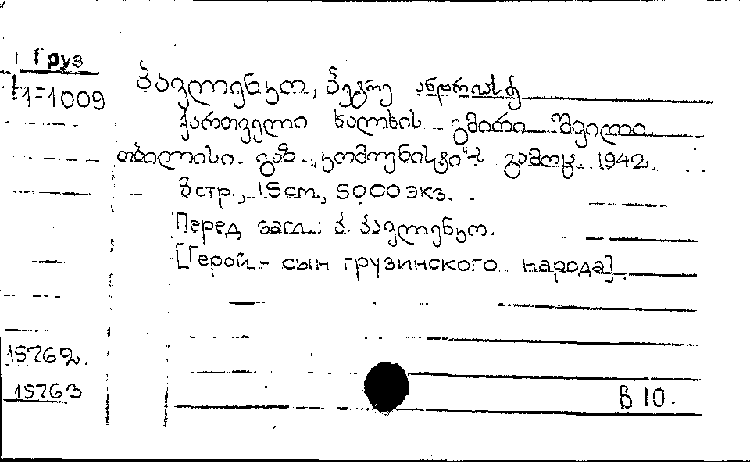 Груз
1-1009
პავლენკო, პეტრე
ქართველი ხალხის გმირი შვილი
თბილისი. გაზ. „კომუნისტი"-ს გამოც. 1942.
8 стр., 15 cm, 5000 экз.
Перед загл.: პ. პავლენკო.
[Герой - сын грузинского народа].
15762.
15763
В 10.